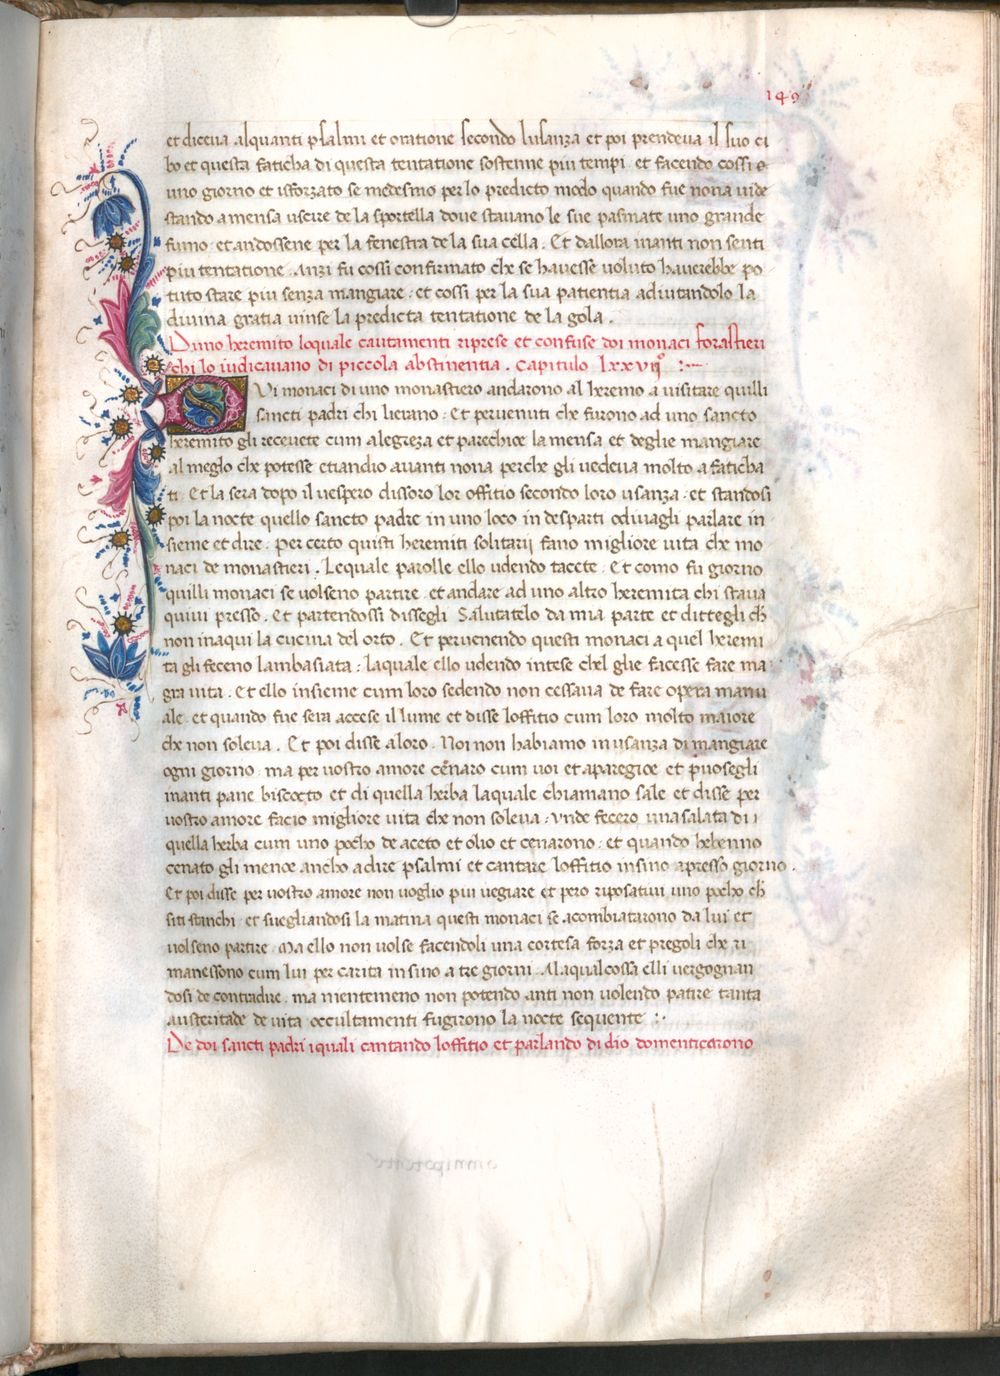 149
et diceua alquanti psalmi et oratione secondo lusanza et poi prendeua il suo ci
bo et questa faticha di questa tentatione sostenne piu tempi. et facendo cossi
uno giorno et isforzato se medesmo per lo predicto modo quando fue nona uide
stando a mensa uscire de la sportella doue stauano le sue palmate uno grande
fumo. et andossene per la fenestra de la sua cella. Et dallora inanti non senti
piu tentatione. Anzi fu cossi confirmato che se hauesse uoluto hauerebbe po
tuto stare piu senza mangiare. et cossi per la sua patientia adiutandolo la
diuina gratia uinse la predicta tentatione de la gola.
Duno heremito loquale cautamenti riprese et confuse doi monaci forastieri
chi lo iudicauano di piccola abstinentia. Capitulo lxxvii°
Dui monaci di uno monastiero andarono al heremo a uisitare quilli
sancti padri chi lierano. Et peruenuti che furono ad uno sancto
heremito gli receuete cum alegreza et parechioe la mensa et deglie mangiare
al meglo che potesse etiandio auanti nona perche gli uedeua molto afaticha
ti. Et la sera dopo il uespero dissoro lor offitio secondo loro usanza. et standosi
poi la nocte quello sancto padre in uno loco in desparti odiuagli parlare in
sieme et dire. per certo quisti heremiti solitarij fano migliore uita che mo
naci de monastieri. Lequale parolle ello udendo tacete. Et como fu giorno
quilli monaci se uolseno partire. et andare ad uno altro heremita chi staua
quiui presso. Et partendossi dissegli Salutatelo da mia parte et dittegli ch̄
non inaqui la cucina del orto. Et peruenendo questi monaci a quel heremi
ta gli feceno lambasiata: laquale ello udendo intese chel glie facesse fare ma
gra uita. Et ello insieme cum loro sedendo non cessaua de fare opera manu
ale. et quando fue sera accese il lume et disse loffitio cum loro molto maiore
che non soleua. Et poi disse a loro. Noi non habiamo in usanza di mangiare
ogni giorno. ma per uostro amore cēnaro cum uoi et aparegioe et puosegli
inanti pane biscocto et di quella herba laquale chiamano sale et disse per
uostro amore facio migliore uita che non soleua. unde fecero una salata di
quella herba cum uno pocho de aceto et olio et cenarono. et quando hebenno
cenato gli mence ancho a dire psalmi et cantare loffitio insino apresso giorno.
Et poi disse per uostro amore non uoglio piu uegiare et pero riposatiui uno pocho ch̄
siti stanchi. et suegliandosi la matina questi monaci se acombiatarono da lui et
uolseno partire. Ma ello non uolse facendoli una cortesa forza et pregoli che ri
manessono cum lui per carita insino a tre giorni. Alaqual cossa elli uergognan
dosi de contradire. ma nientemeno non potendo anti non uolendo patire tanta
austeritade de uita occultamenti fugirono la nocte sequente :.
De doi sancti padri iquali cantando loffitio et parlando di dio domenticorono
omnipotente